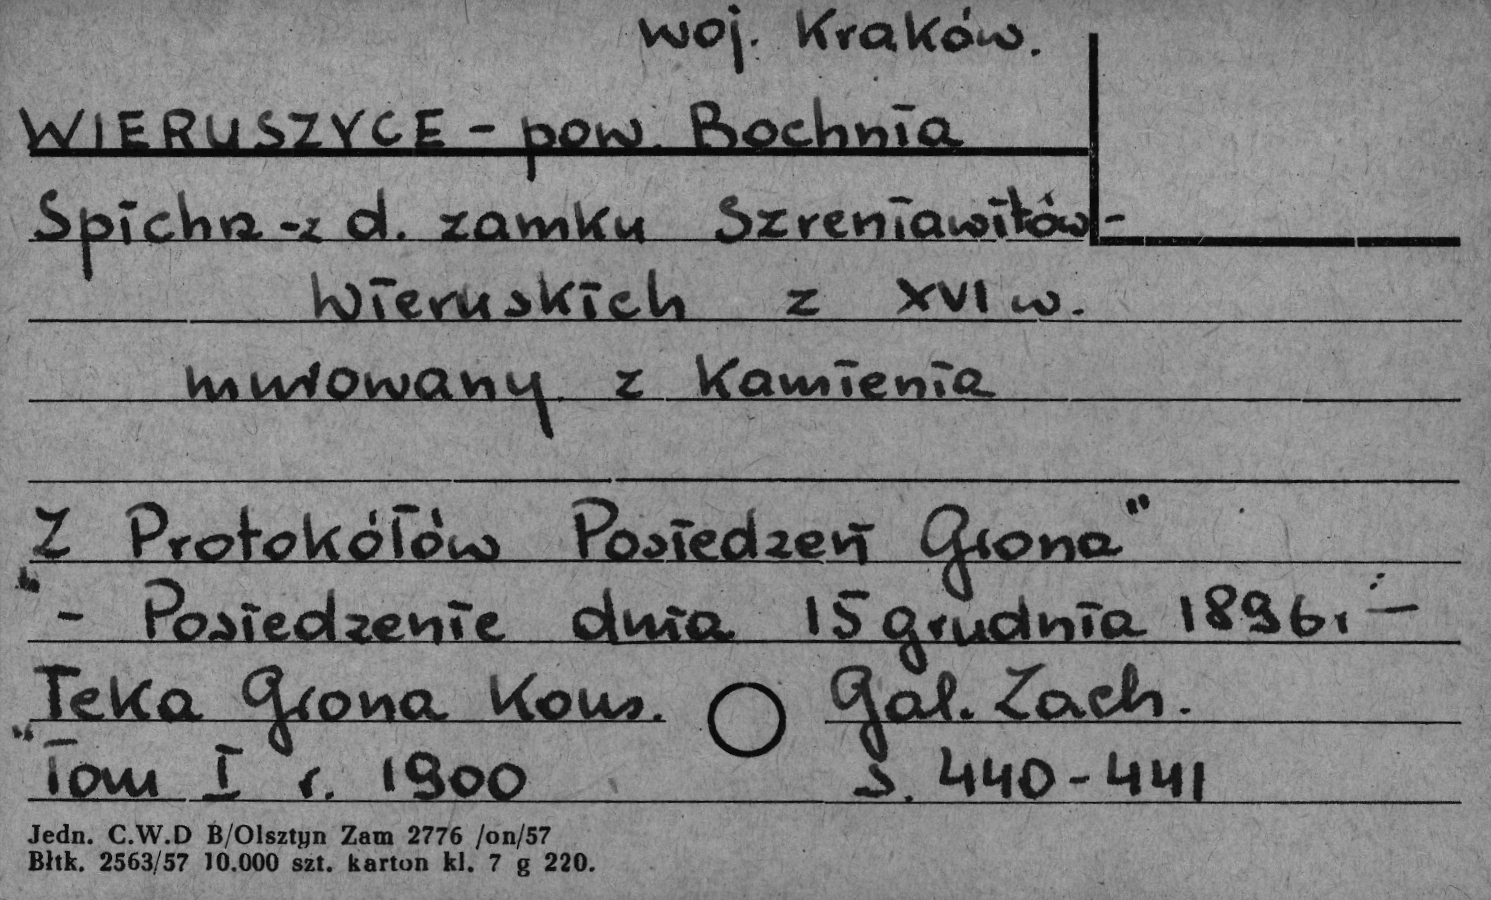 woj. Kraków.
WIERUSZYCE - pow. Bochnia
Spichrz - z d. zamku Szreniawitów -
Wieruskich z XVI w.
murowany z Kamienia
Z Protokółów Posiedzeń Grona"
" - Posiedzenie dnia 15 grudnia 1896 r -
Teka Grona Kons. Gal. Zach.
"Tom I r. 1900 s. 440-441
Jedn. C.W.D B/Olsztyn Zam 2776 /on/57
Błtk. 2563/57 10.000 szt. karton kl. 7 g 220.